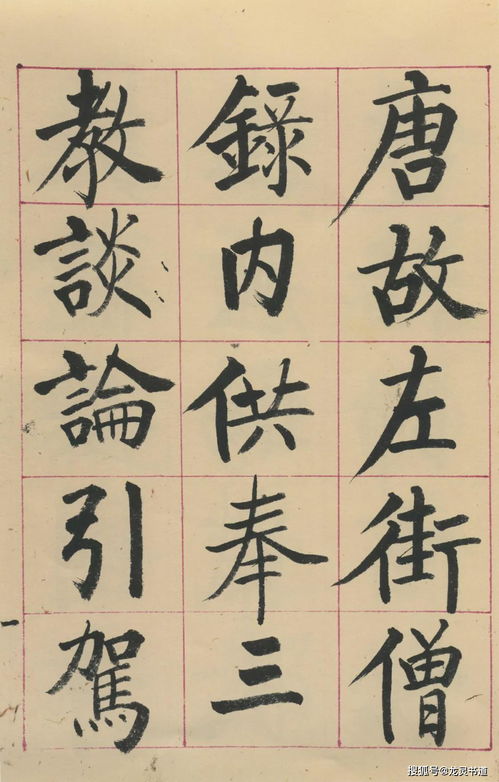 唐故左街僧
錄内供奉三
教談論引駕
一
搜狐号@龙灵书道